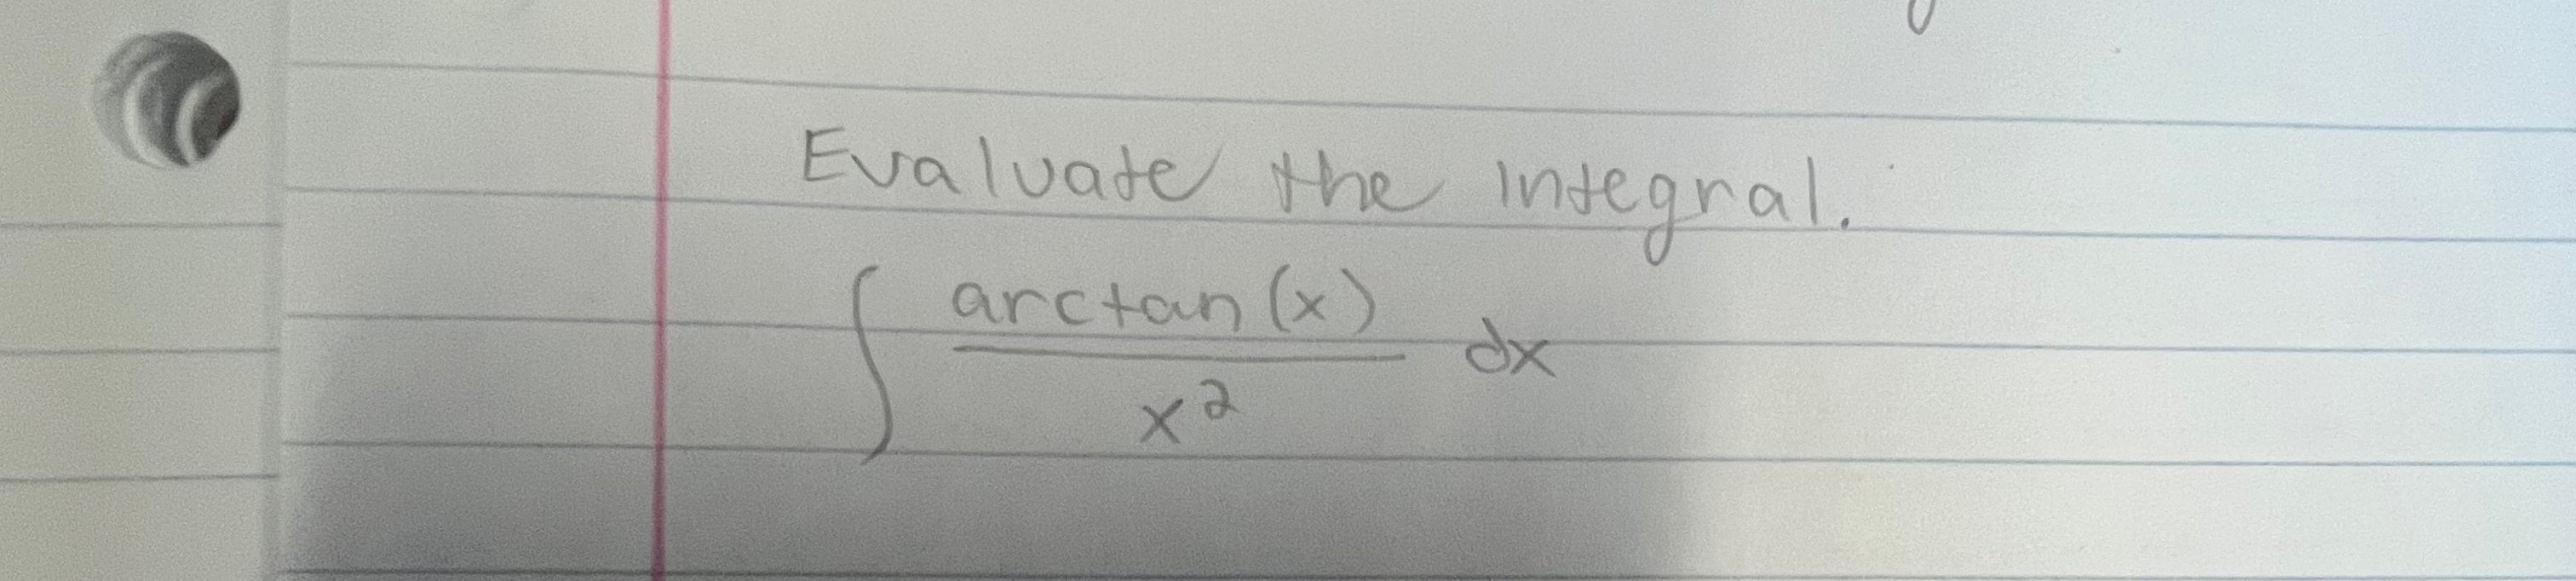 Evaluate the integral.
∫ arctan(x) / x² dx